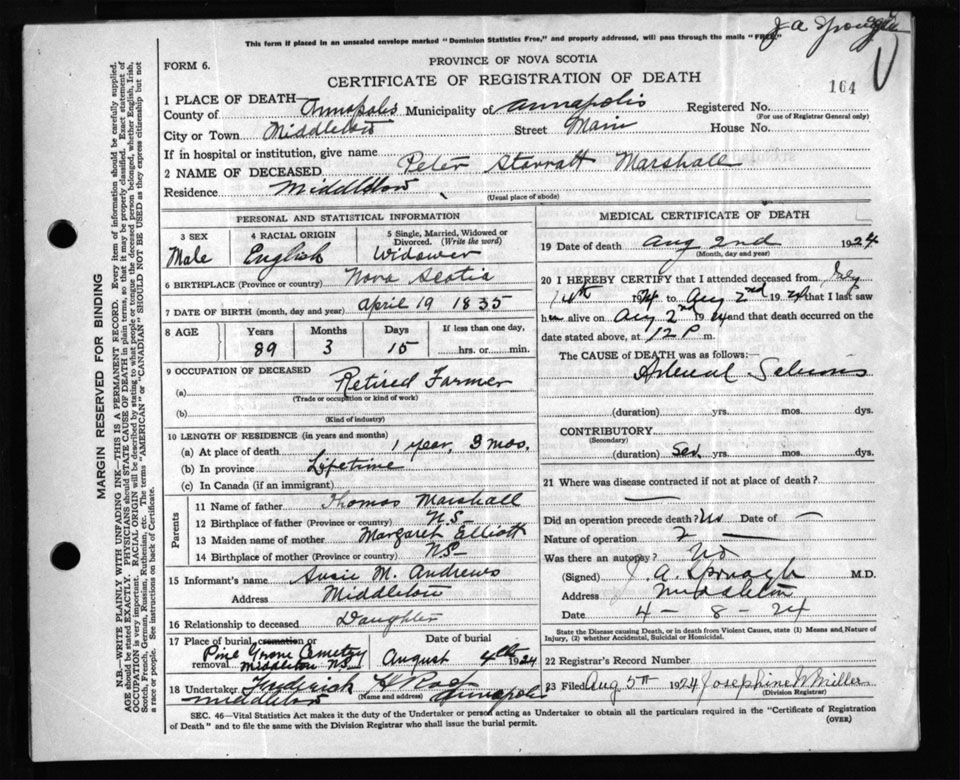 This form if placed in an unsealed envelope marked "Dominion Statistics Free," and properly addressed, will pass through the mails "FREE."
J A
FORM 6.
PROVINCE OF NOVA SCOTIA
CERTIFICATE OF REGISTRATION OF DEATH
164
1 PLACE OF DEATH
County of Annapolis Municipality of Annapolis Registered No.
(For use of Registrar General only)
City or Town Middleton Street Main House No.
If in hospital or institution, give name
2 NAME OF DECEASED Peter Starratt Marshall
Residence Middleton
(Usual place of abode)
PERSONAL AND STATISTICAL INFORMATION
3 SEX
Male
4 RACIAL ORIGIN
English
5 Single, Married, Widowed or
Divorced. (Write the word)
Widower
6 BIRTHPLACE (Province or country) Nova Scotia
7 DATE OF BIRTH (month, day and year) April 19 1835
8 AGE
Years Months Days If less than one day,
89 3 15 ......hrs. or ......min.
9 OCCUPATION OF DECEASED
(a) Retired Farmer
(Trade or occupation or kind of work)
(b)
(Kind of industry)
10 LENGTH OF RESIDENCE (in years and months)
(a) At place of death 1 year, 3 mos.
(b) In province Lifetime
(c) In Canada (if an immigrant)
Parents
11 Name of father Thomas Marshall
12 Birthplace of father (Province or country) N.S.
13 Maiden name of mother Margaret Elliott
14 Birthplace of mother (Province or country) N.S.
15 Informant's name Susie M. Andrews
Address Middleton
16 Relationship to deceased Daughter
17 Place of burial cremation or
removal Pine Grove Cemetry
Middleton N.S.
Date of burial
August 4th 1924
18 Undertaker Frederick H
(Name and address)
Middleton Annapolis
MEDICAL CERTIFICATE OF DEATH
19 Date of death Aug 2nd 1924
(Month, day and year)
20 I HEREBY CERTIFY that I attended deceased from July
1924 to Aug 2nd 1924 that I last saw
him alive on Aug 2nd 1924 and that death occurred on
date stated above, at 12 P m.
The CAUSE OF DEATH was as follows:—
(duration) yrs. mos. dys.
CONTRIBUTORY
(Secondary)
(duration) yrs. mos. dys.
21 Where was disease contracted if not at place of death?
—
Did an operation precede death? No Date of —
Nature of operation —
Was there an autopsy? No
(Signed) J. A. M.D.
Address Middleton
Date 4 - 8 - 24
State the Disease causing Death, or in death from Violent Causes, state (1) Means and Nature of
Injury, (2) whether Accidental, Suicidal or Homicidal.
22 Registrar's Record Number
23 Filed Aug 5th 1924 Josephine W Miller
(Division Registrar)
SEC. 46—Vital Statistics Act makes it the duty of the Undertaker or person acting as Undertaker to obtain all the particulars required in the "Certificate of Registration
of Death" and to file the same with the Division Registrar who shall issue the burial permit. (OVER)
MARGIN RESERVED FOR BINDING
N.B.—WRITE PLAINLY WITH UNFADING INK—THIS IS A PERMANENT RECORD. Every item of information should be carefully supplied.
AGE should be stated EXACTLY. PHYSICIANS should STATE CAUSE OF DEATH in plain terms, so that it may be properly classified. Exact statement of
OCCUPATION is very important. RACIAL ORIGIN will be described by stating to what people or tongue the deceased person belonged, whether English, Irish,
Scotch, French, German, Russian, Ruthenian, etc. The terms "AMERICAN" or "CANADIAN" SHOULD NOT BE USED as they express citizenship but not
a race or people. See instructions on back of Certificate.